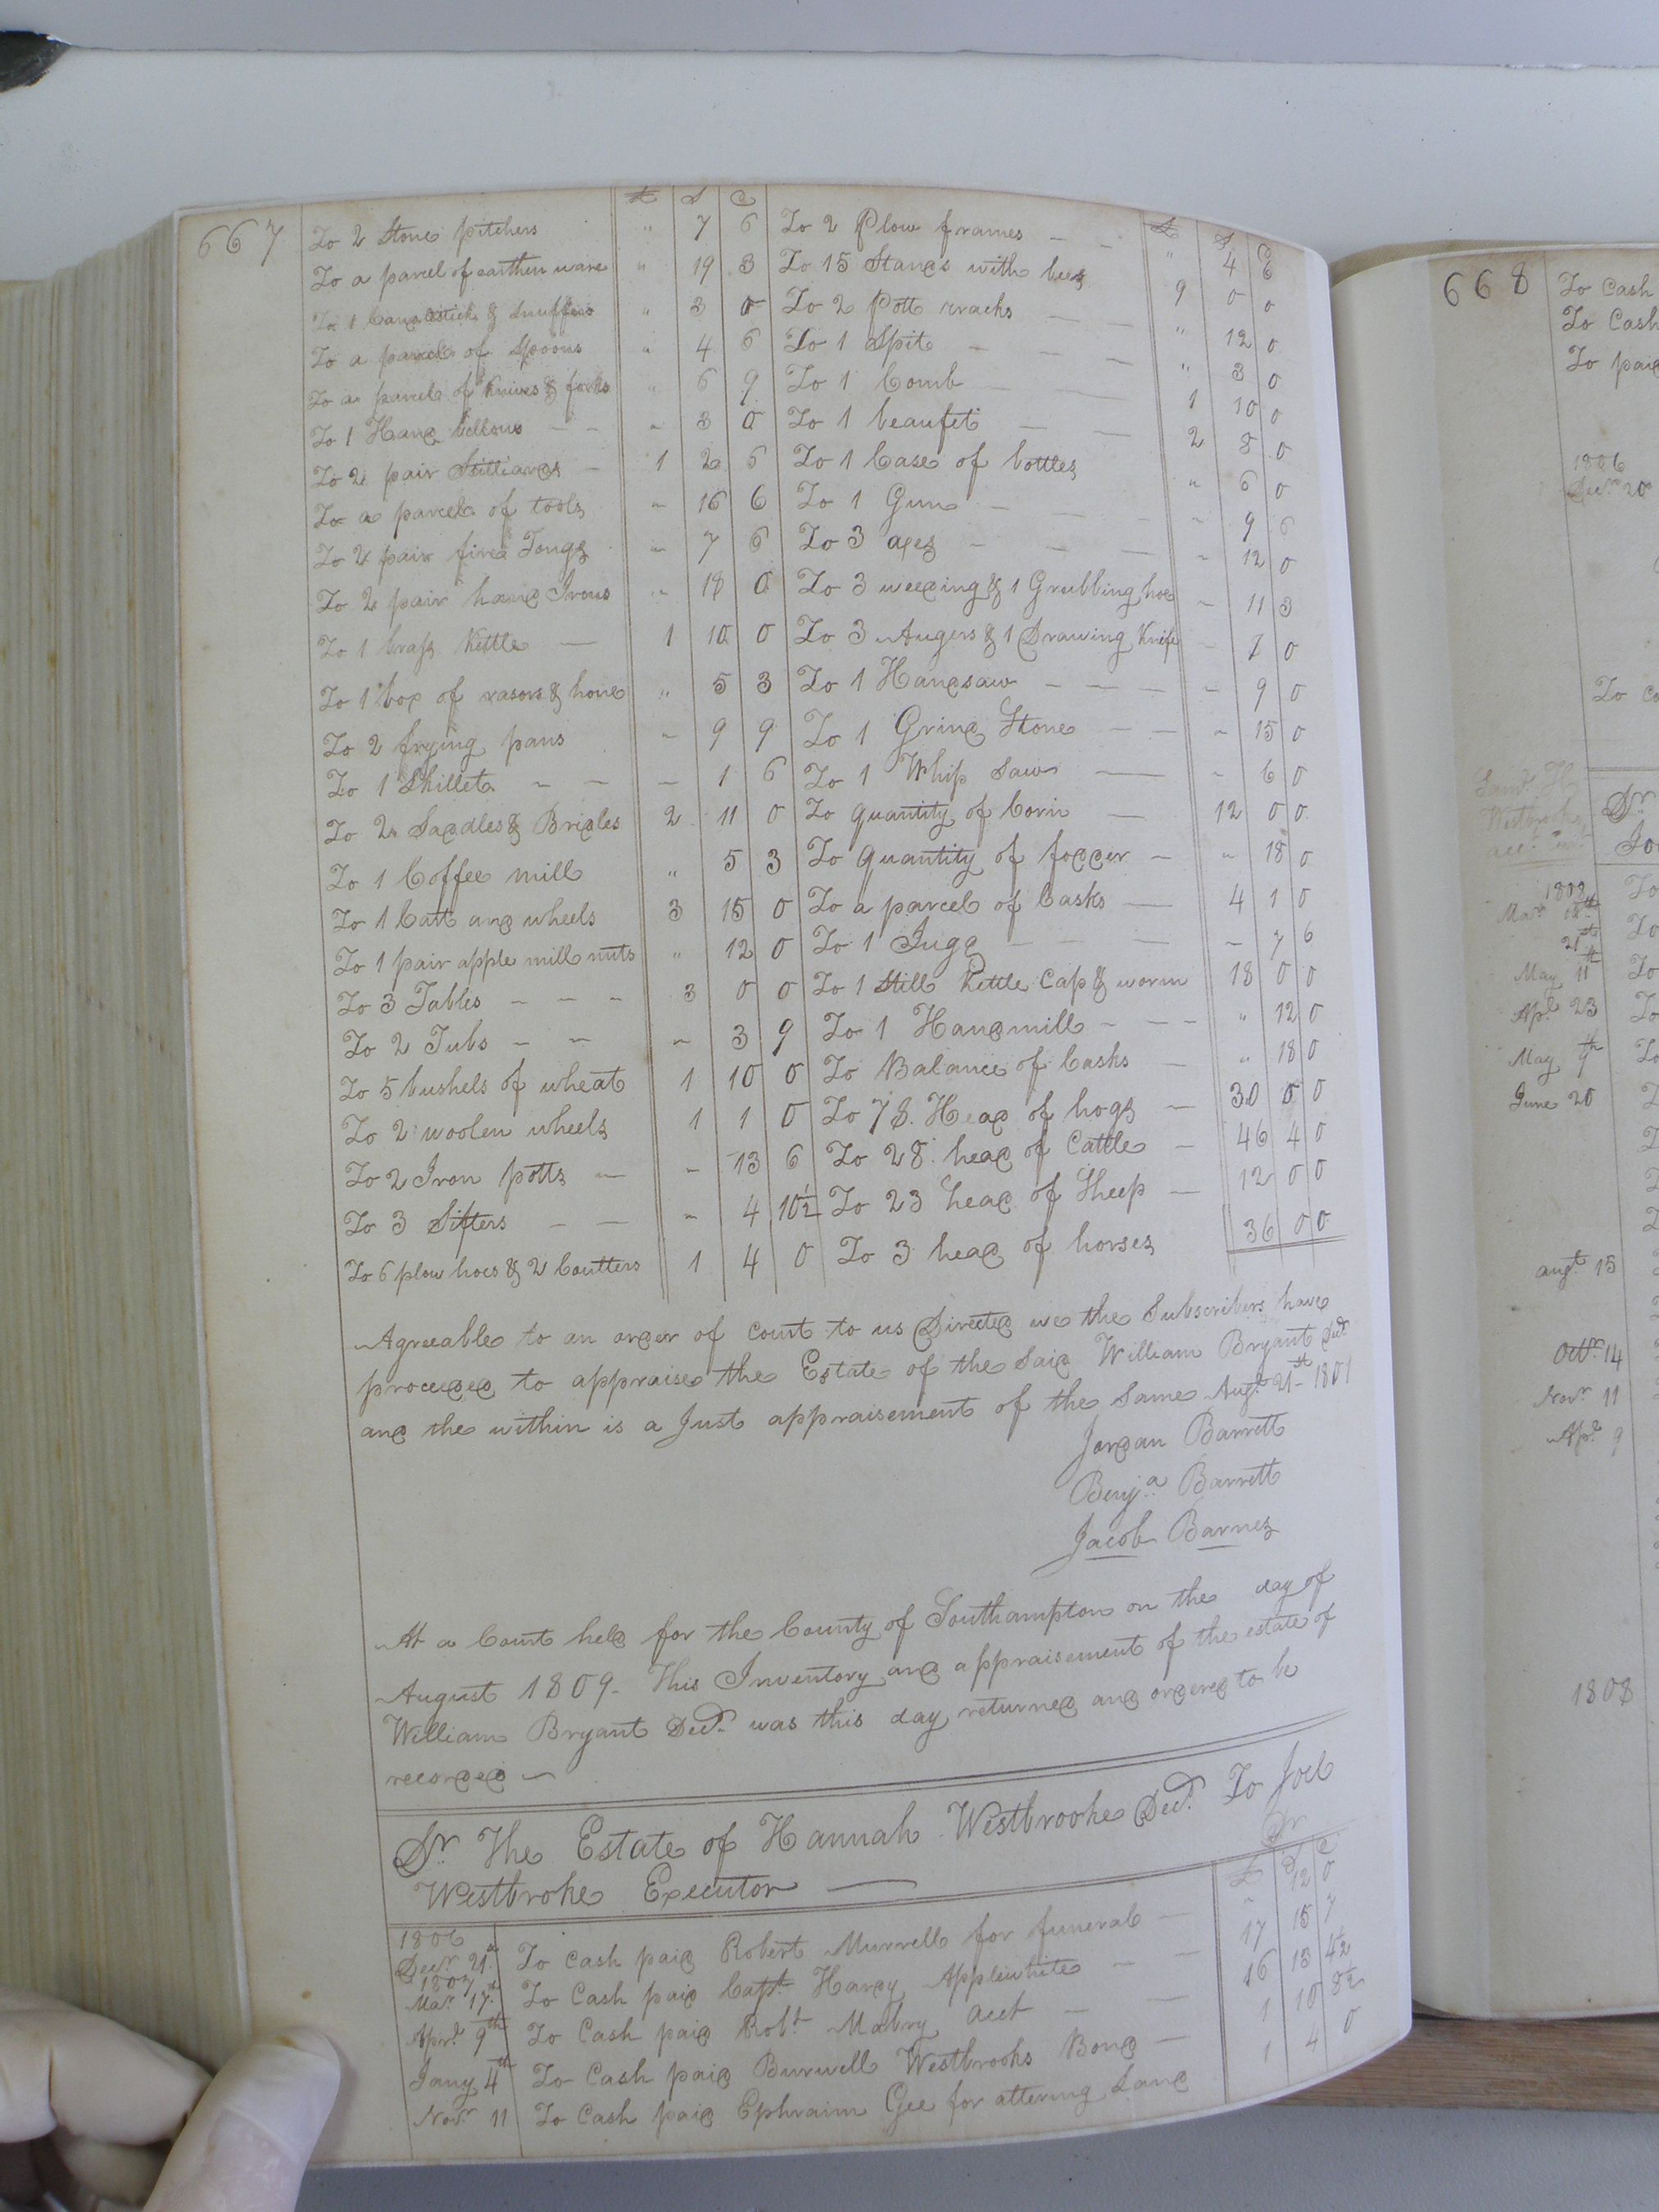 667
£ S D
To 2 Stone pitchers " 7 6
To a parcel of earthen ware " 19 3
To 1 Candlestick & Snuffers " 3 0
To a parcel of Spoons " 4 6
To a parcel of knives & forks " 6 9
To 1 Hand bellows — — " 3 0
To 2 pair Stilliards — 1 2 6
To a parcel of tools — 16 6
To 2 pair fire Tongs — 7 6
To 2 pair hand Irons " 18 0
To 1 brass Kettle — 1 10 0
To 1 box of rasors & hone " 5 3
To 2 frying pans — 9 9
To 1 Skillet — — — 1 6
To 2 Saddles & Bridles 2 11 0
To 1 Coffee mill " 5 3
To 1 Catt and wheels 3 15 0
To 1 pair apple mill nuts " 12 0
To 3 Tables — — — 3 0 0
To 2 Tubs — — — 3 9
To 5 bushels of wheat 1 10 0
To 2 woolen wheels 1 1 0
To 2 Iron potts — — 13 6
To 3 Sifters — — — 4 10½
To 6 plow hoes & 2 Coutters 1 4 0
£ S D
To 2 Plow frames — — " 4 6
To 15 Stands with bees 9 0 0
To 2 Pott rracks — — " 12 0
To 1 Spit — — — " 3 0
To 1 Comb — — 1 10 0
To 1 beaufet — — 2 8 0
To 1 Case of bottles " 6 0
To 1 Gun — — — — 9 6
To 3 axes — — — — 12 0
To 3 weeding & 1 Grubbing hoe — 11 3
To 3 Augers & 1 Drawing Knife — 7 0
To 1 Handsaw — — — — 9 0
To 1 Grind Stone — — — 15 0
To 1 Whip Saw — — 6 0
To quantity of Corn — 12 0 0
To quantity of fodder — — 18 0
To a parcel of Casks — 4 1 0
To 1 Jugg — — — — 7 6
To 1 Still Kettle Cap & worm 18 0 0
To 1 Handmill — — — " 12 0
To Balance of Casks — " 18 0
To 78. Head of hogs — 30 0 0
To 28. head of Cattle — 46 4 0
To 23 head of Sheep — 12 0 0
To 3 head of horses 36 0 0
Agreeable to an order of court to us Directed we the Subscribers have
proceeded to appraise the Estate of the Said William Bryant Decd
and the within is a Just appraisement of the Same Augt 21st 1801
Jordan Barrett
Benja Barrett
Jacob Barnes
At a Court held for the County of Southampton on the day of
August 1809. This Inventory and appraisement of the estate of
William Bryant Decd. was this day returned and ordered to be
recorded —
Dr. The Estate of Hannah Westbrooke Decd. To Joel
Westbroke Executor —
Dr
£ S D
1806
Decr 21st To Cash paid Robert Murrell for funeral — — 12 0
1807
Mar. 17th To Cash paid Capt Hardy Applewhite — — 17 15 7
Aprl 9th To Cash paid Robt Mabry acct — — 16 13 4½
Jany 4th To Cash paid Burwell Westbrooks Bond — 1 10 8½
Novr 11 To Cash paid Ephraim Gee for attering Land 1 4 0
668
To Cash
To Cash
To paid
1806
Decr 20
To Ca
Saml. H
Westbrook
Dr
1802
Mar 18th To
21st To
May 11th To
Apl 23 To
May 9th To
June 20
augt 15
Octr 14
Novr 11
Apl 9
1808